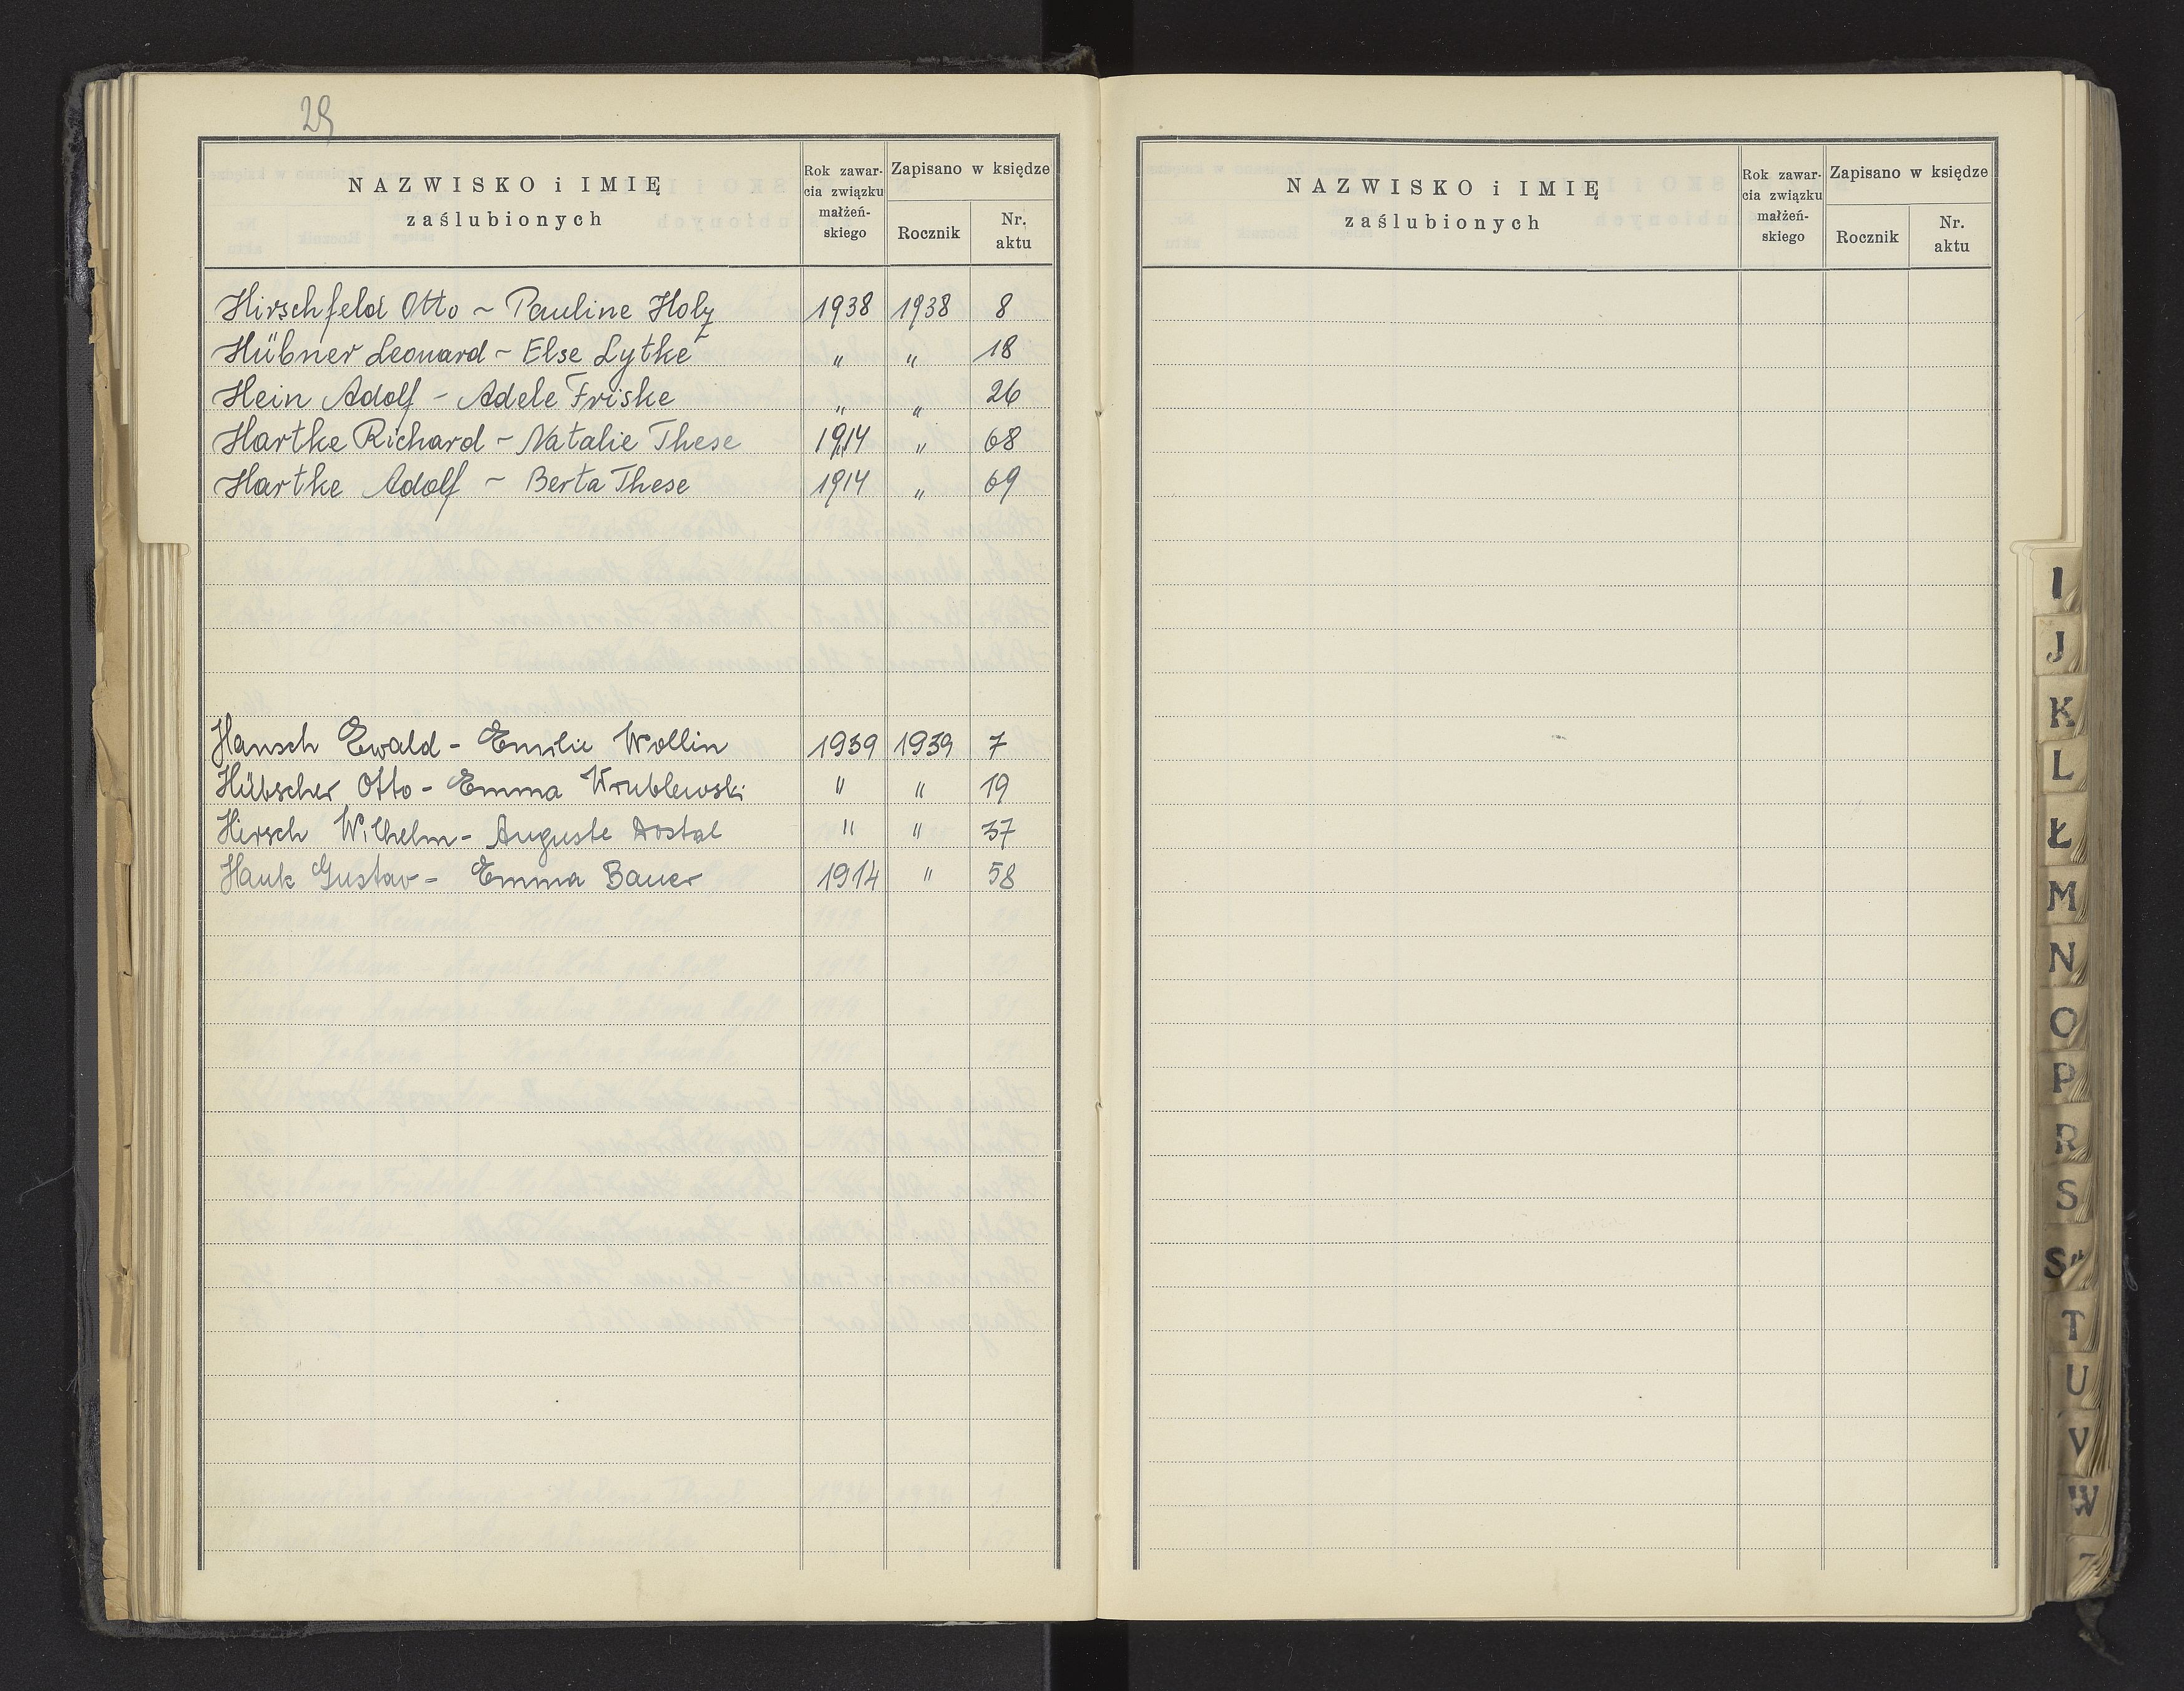 29
NAZWISKO i IMIĘ
zaślubionych
Rok zawar-
cia związku
małżeń-
skiego
Zapisano w księdze
Rocznik
Nr.
aktu
Hirschfeld Otto ~ Pauline Holz 1938 1938 8
Hübner Leonard ~ Else Lytke " " 18
Hein Adolf - Adele Friske " " 26
Hartke Richard ~ Natalie These 1914 " 68
Hartke Adolf ~ Berta These 1914 " 69
Hansch Ewald - Emilie Wollin 1939 1939 7
Hübscher Otto - Emma Wrublewski " " 19
Hirsch Wilhelm - Auguste Dostal " " 37
Hauk Gustav - Emma Bauer 1914 " 58
NAZWISKO i IMIĘ
zaślubionych
Rok zawar-
cia związku
małżeń-
skiego
Zapisano w księdze
Rocznik
Nr.
aktu
I
J
K
L
Ł
M
N
O
P
R
S
T
U
V
W
Z